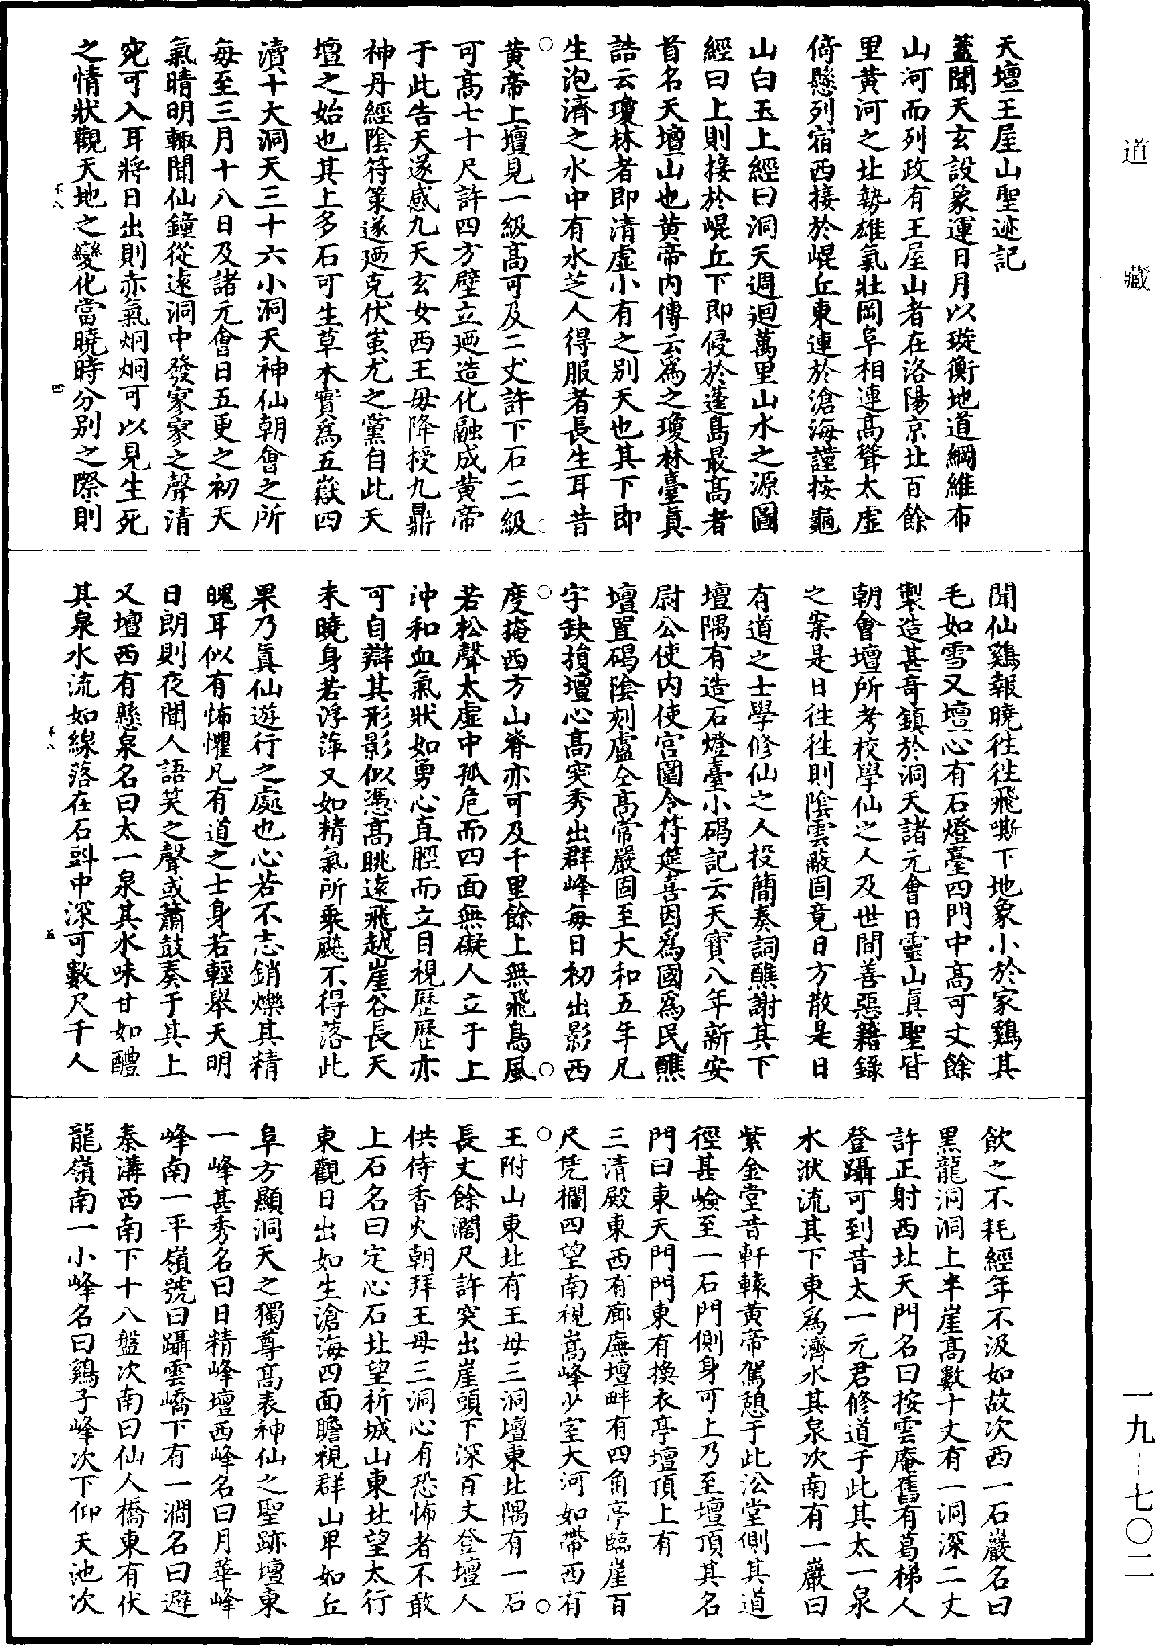 道藏
天壇王屋山聖迹記
蓋聞天玄設象運日月以璇衡地道綱維布
山河而列政有王屋山者在洛陽京北百餘
里黄河之北勢雄氣壯岡阜相連高聳太虛
倚懸列宿西接於崐丘東連於滄海謹按龜
山白玉上經曰洞天週迴萬里山水之源圖
經曰上則接於崐丘下即侵於蓬島最高者
首名天壇山也黄帝内傳云爲之瓊林臺真
誥云瓊林者即清虛小有之别天也其下即
生泡濟之水中有水芝人得服者長生耳昔
黄帝上壇見一級高可及二丈許下石二級
可高七十尺許四方壁立廼造化融成黄帝
于此告天遂感九天玄女西王母降授九鼎
神丹經陰符策遂廼克伏蚩尤之黨自此天
壇之始也其上多石可生草木實爲五嶽四
瀆十大洞天三十六小洞天神仙朝會之所
每至三月十八日及諸元會日五更之初天
氣晴明輙聞仙鐘從遠洞中發寥寥之聲清
宛可入耳將日出則赤氣炯炯可以見生死
之情狀觀天地之變化當曉時分别之際則
聞仙鷄報曉徃徃飛嘶下地象小於家鷄其
毛如雪又壇心有石燈臺四門中高可丈餘
製造甚奇鎮於洞天諸元會日靈山真聖皆
朝會壇所考校學仙之人及世間善惡籍録
之案是日徃徃則陰雲蔽固竟日方散是日
有道之士學修仙之人投簡奏詞醮謝其下
壇隅有造石燈臺小碣記云天寶八年新安
尉公使内使宫闈令符筵喜因爲國爲民醮
壇置碣陰刻盧仝高常嚴固至大和五年凡
字缺損壇心高突秀出群峰每日初出影西
度掩西方山脊亦可及千里餘上無飛鳥風
若松聲太虛中孤危而四面無礙人立于上
沖和血氣狀如勇心直脛而立目視歷歷亦
可自辯其形影似憑高眺遠飛越崖谷長天
未曉身若浮萍又如精氣所乘飈不得落此
果乃真仙遊行之處也心若不志銷爍其精
魄耳似有怖懼凡有道之士身若輕舉天明
日朗則夜聞人語笑之聲或蕭鼓奏于其上
又壇西有懸泉名曰太一泉其水味甘如醴
其泉水流如線落在石㪷中深可數尺千人
飲之不耗經年不汲如故次西一石巖名曰
黑龍洞洞上半崖高數十丈有一洞深二丈
許正射西北天門名曰按雲庵舊有葛梯人
登躡可到昔太一元君修道于此其太一泉
水洑流其下東爲濟水其泉次南有一巖曰
紫金堂音軒轅黄帝駕憩于此㳂堂側其道
徑甚嶮至一石門側身可上乃至壇頂其名
門曰東天門門東有換衣亭壇頂上有
三清殿東西有廊廡壇畔有四角亭臨崖百
尺凭欄四望南視嵩峰少室大河如帶西有
王附山東北有王母三洞壇東北隅有一石
長丈餘濶尺許突出崖頭下深百丈登壇人
供侍香火朝拜王母三洞心有恐怖者不敢
上石名曰定心石北望析城山東北望太行
東觀日出如生滄海四面瞻視群山卑如丘
阜方顯洞天之獨尊高表神仙之聖跡壇東
一峰甚秀名曰日精峰壇西峰名曰月華峰
峰南一平嶺號曰躡雲嶠下有一澗名曰避
秦溝西南下十八盤次南曰仙人橋東有伏
龍嶺南一小峰名曰鷄子峰次下仰天池次
一九—七〇二